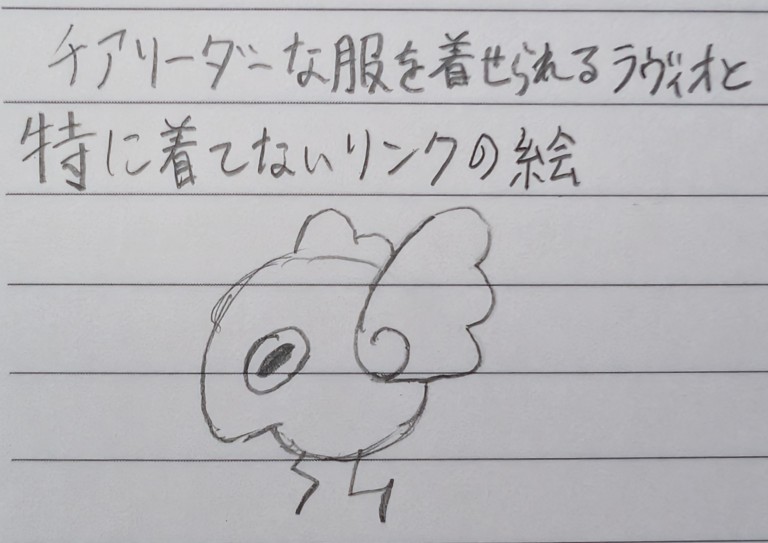 チアリーダーな服を着せられるラヴィオと
特に着てないリンクの絵